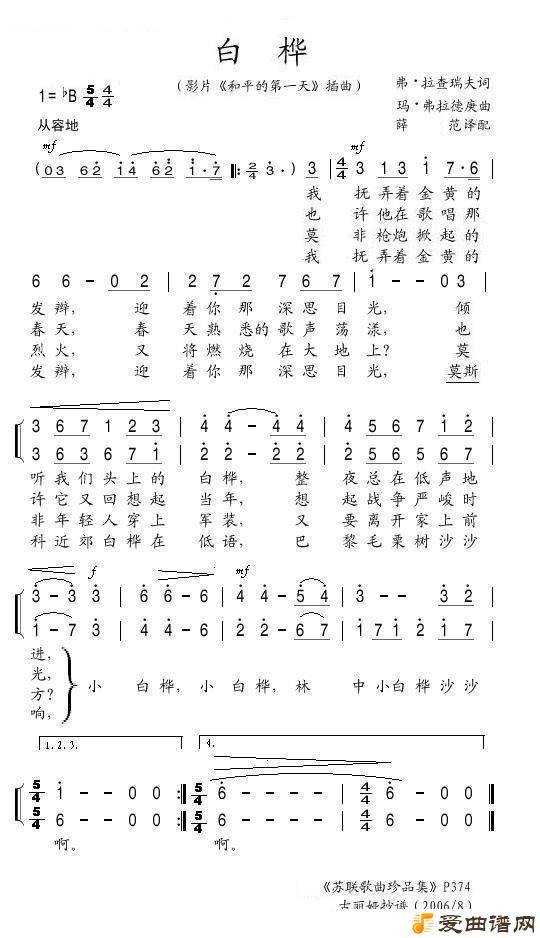 白桦
（影片《和平的第一天》插曲）
弗·拉查瑞夫词
玛·弗拉德庚曲
薛 范译配
1=♭B 5/4 4/4
从容地
mf mf
(03 62 14 62 1·7 ‖: 2/4 3·) 3 | 4/4 3 13 1 7·6
我 抚弄着金黄的
也 许他在歌唱那
莫 非枪炮掀起的
我 抚弄着金黄的
6 6 - 02 | 2 72 7 67 | 1 - - 03
发辫， 迎 着你那深思目光， 倾
春天， 春 天熟悉的歌声荡漾， 也
烈火， 又 将燃烧在大地上？ 莫
发辫， 迎 着你那深思目光， 莫斯
3 67 1 23 | 4 4 - 44 | 4 56 7 12
3 63 6 71 | 2 2 - 22 | 2 45 6 71
听我们头上的 白桦， 整 夜总在低声地
许它又回想起 当年， 想 起战争严峻时
非年轻人穿上 军装， 又 要离开家上前
科近郊白桦在 低语， 巴 黎毛栗树沙沙
f mf
3 - 3 3 | 6 6 - 6 | 4 4 - 54 | 3 - - 3 | 2 2 2 32
1 - 7 3 | 4 4 - 6 | 2 2 - 67 | 1 71 2 1 | 7 7 7 17
进，
光，
方？
响，
小 白桦， 小 白桦， 林 中小白桦沙沙
1.2.3. 4.
5/4 1 - - 0 0 :‖ 5/4 6 - - - - | 4/4 6 - 0 0 ‖
5/4 6 - - 0 0 :‖ 5/4 6 - - - - | 4/4 6 - 0 0 ‖
啊。 啊。
《苏联歌曲珍品集》P374
古丽娅抄谱（2006/8）
爱曲谱网